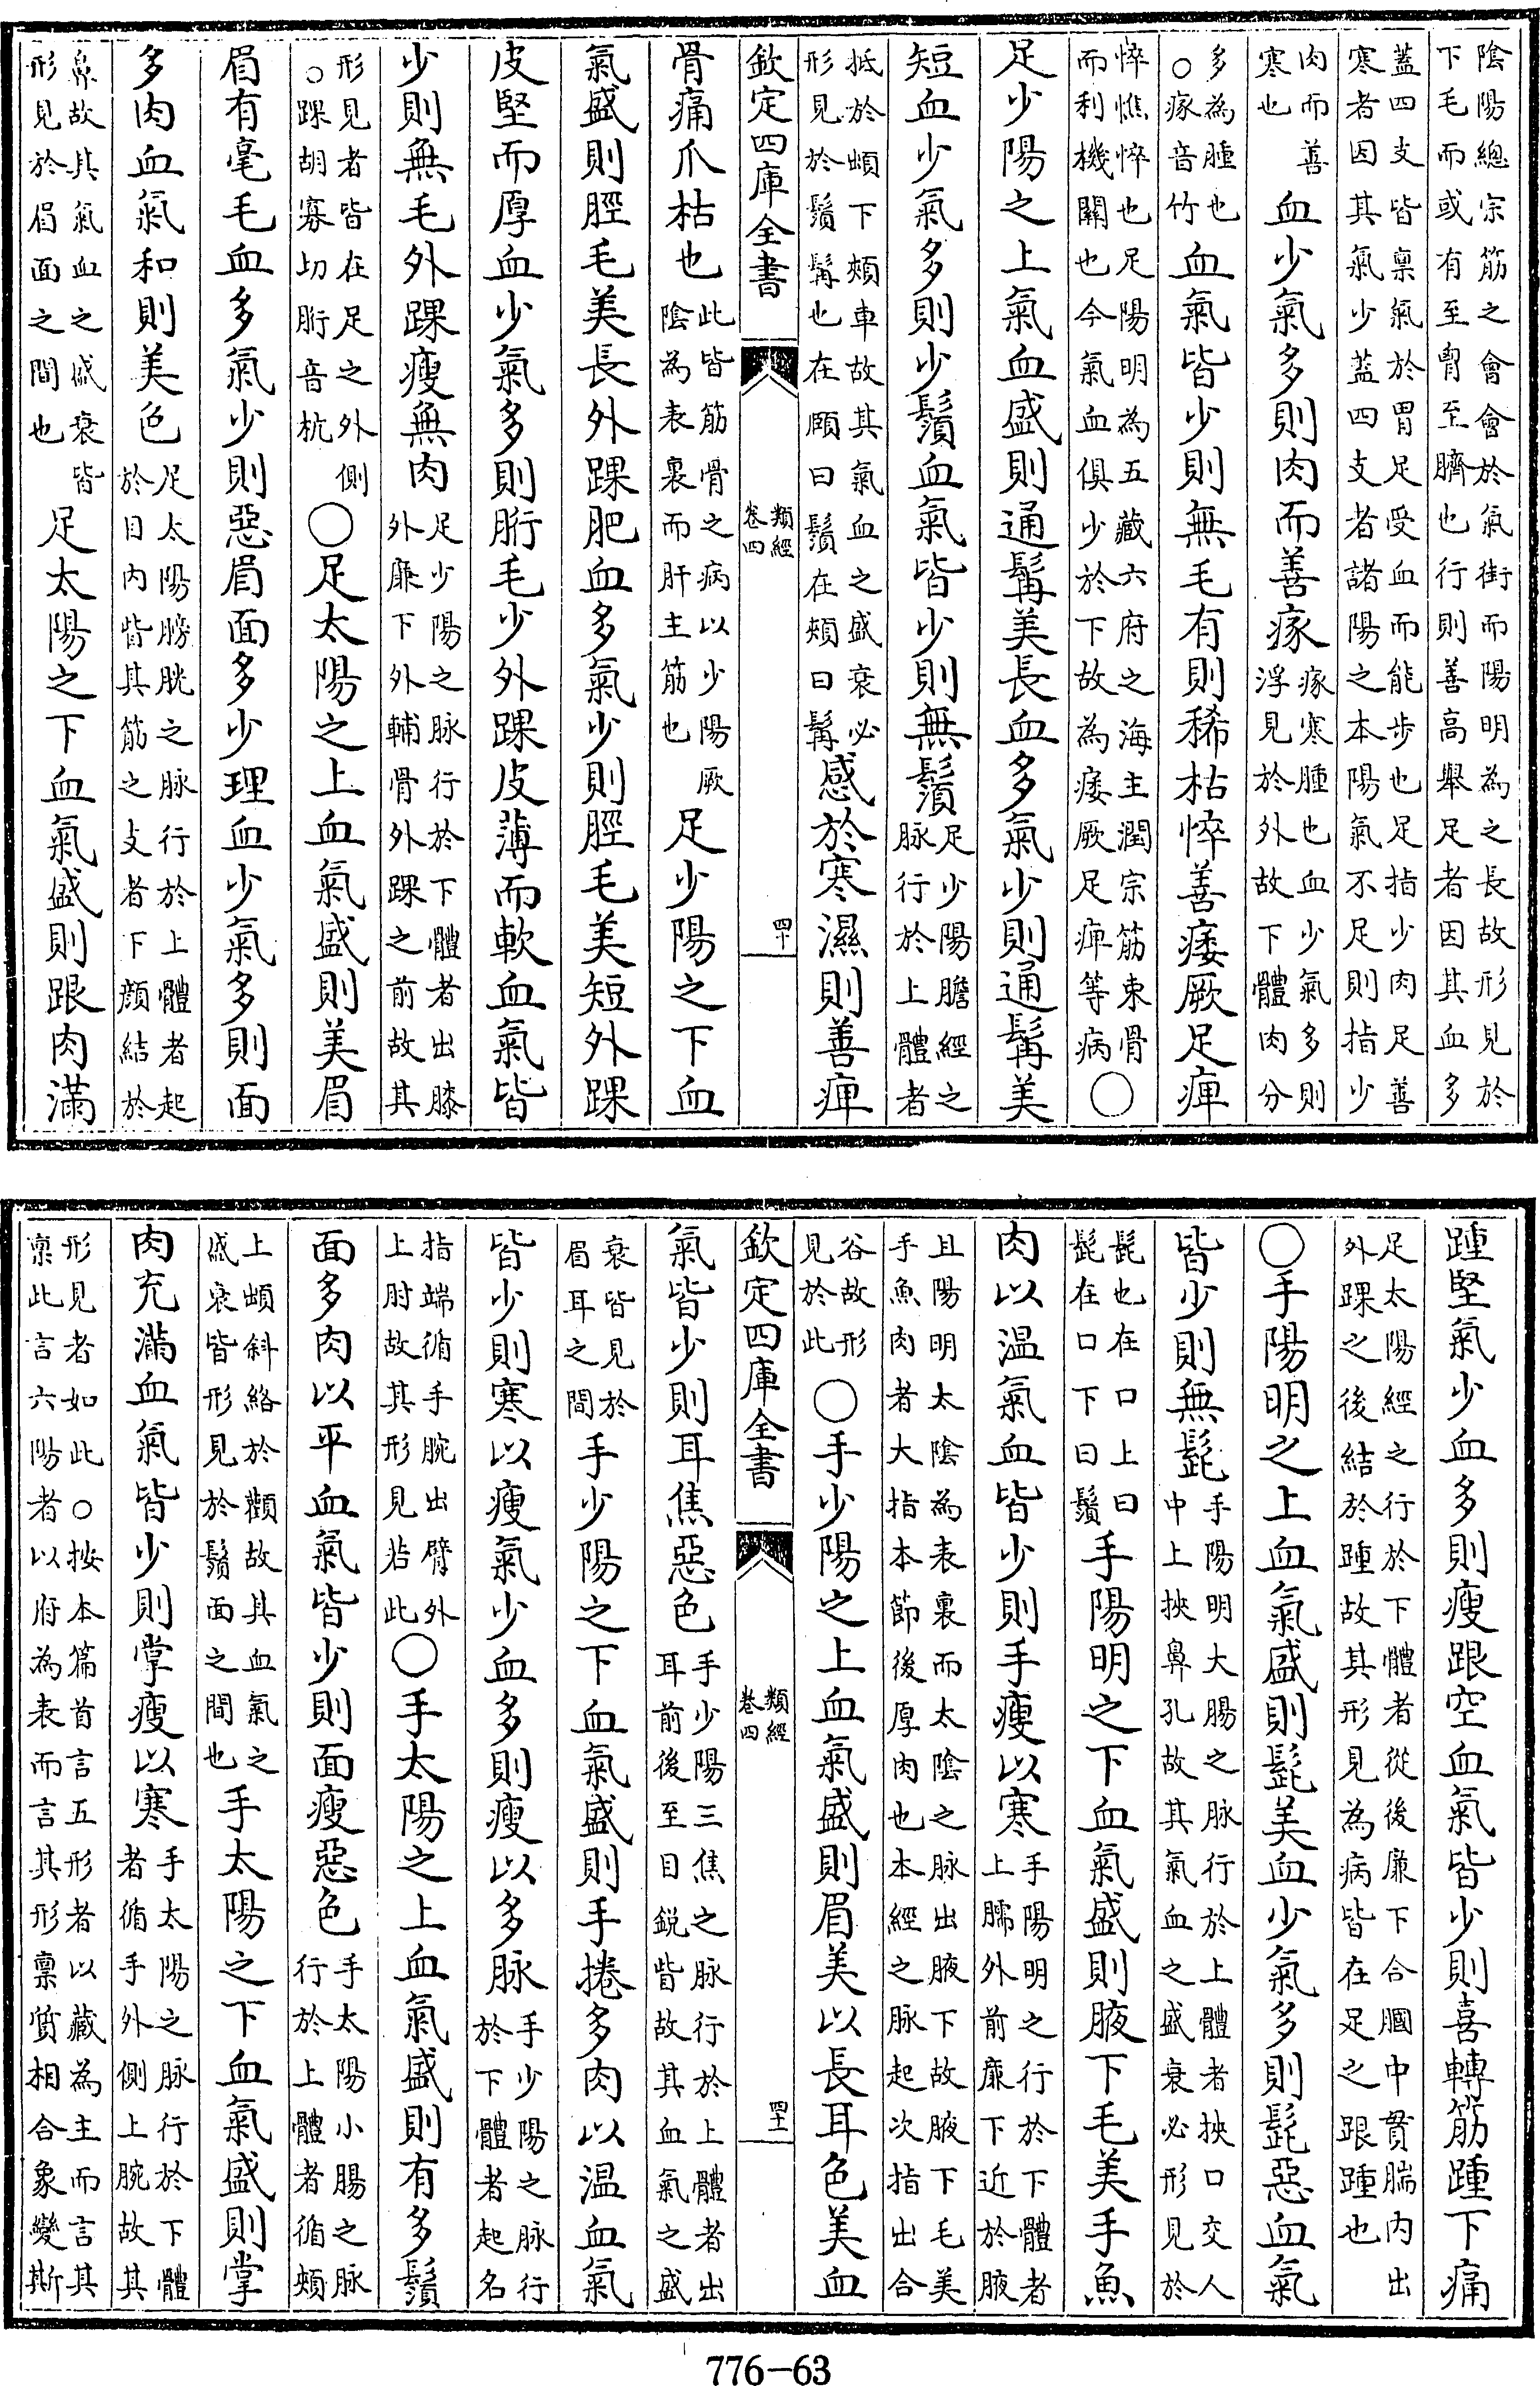 陰陽總宗筋之會會於氣街而陽明為之長故形見於
下毛而或有至胷至臍也行則善高舉足者因其血多
蓋四支皆稟氣於胃足受血而能步也足指少肉足善
寒者因其氣少蓋四支者諸陽之本陽氣不足則指少
肉而善寒也血少氣多則肉而善瘃瘃寒腫也血少氣多則浮見於外故下體肉分
多為腫也○瘃音竹血氣皆少則無毛有則稀枯悴善痿厥足痺
悴憔悴也足陽明為五藏六府之海主潤宗筋束骨
而利機關也今氣血俱少於下故為痿厥足痺等病○
足少陽之上氣血盛則通髯美長血多氣少則通髯美
短血少氣多則少鬚血氣皆少則無鬚足少陽膽經之脉行於上體者
抵於䪼下頰車故其氣血之盛衰必形見於鬚髯也在頤曰鬚在頰曰髯感於寒濕則善痺
欽定四庫全書 類經卷四 四十
骨痛爪枯也此皆筋骨之病以少陽厥陰為表裏而肝主筋也足少陽之下血
氣盛則脛毛美長外踝肥血多氣少則脛毛美短外踝
皮堅而厚血少氣多則胻毛少外踝皮薄而軟血氣皆
少則無毛外踝瘦無肉足少陽之脉行於下體者出膝外廉下外輔骨外踝之前故其
形見者皆在足之外側○踝胡寡切胻音杭○足太陽之上血氣盛則美眉
眉有毫毛血多氣少則惡眉面多少理血少氣多則面
多肉血氣和則美色足太陽膀胱之脉行於上體者起於目內眥其筋之支者下顏結於
鼻故其氣血之盛衰皆形見於眉面之間也足太陽之下血氣盛則跟肉滿
踵堅氣少血多則瘦跟空血氣皆少則喜轉筋踵下痛
足太陽經之行於下體者從後廉下合膕中貫腨內出
外踝之後結於踵故其形見為病皆在足之跟踵也
○手陽明之上血氣盛則髭美血少氣多則髭惡血氣
皆少則無髭手陽明大腸之脉行於上體者挾口交人中上挾鼻孔故其氣血之盛衰必形見於
髭也在口上曰髭在口下曰鬚手陽明之下血氣盛則腋下毛美手魚
肉以溫氣血皆少則手瘦以寒手陽明之行於下體者上臑外前廉下近於腋
且陽明太陰為表裏而太陰之脉出腋下故腋下毛美
手魚肉者大指本節後厚肉也本經之脉起次指出合
谷故形見於此○手少陽之上血氣盛則眉美以長耳色美血
欽定四庫全書 類經卷四 四十一
氣皆少則耳焦惡色手少陽三焦之脉行於上體者出耳前後至目銳眥故其血氣之盛
衰皆見於眉耳之間手少陽之下血氣盛則手捲多肉以溫血氣
皆少則寒以瘦氣少血多則瘦以多脉手少陽之脉行於下體者起名
指端循手腕出臂外上肘故其形見若此○手太陽之上血氣盛則有多鬚
面多肉以平血氣皆少則面瘦惡色手太陽小腸之脉行於上體者循頰
上䪼斜絡於顴故其血氣之盛衰皆形見於鬚面之間也手太陽之下血氣盛則掌
肉充滿血氣皆少則掌瘦以寒手太陽之脉行於下體者循手外側上腕故其
形見者如此○按本篇首言五形者以藏為主而言其
稟此言六陽者以府為表而言其形稟質相合象變斯
776-63